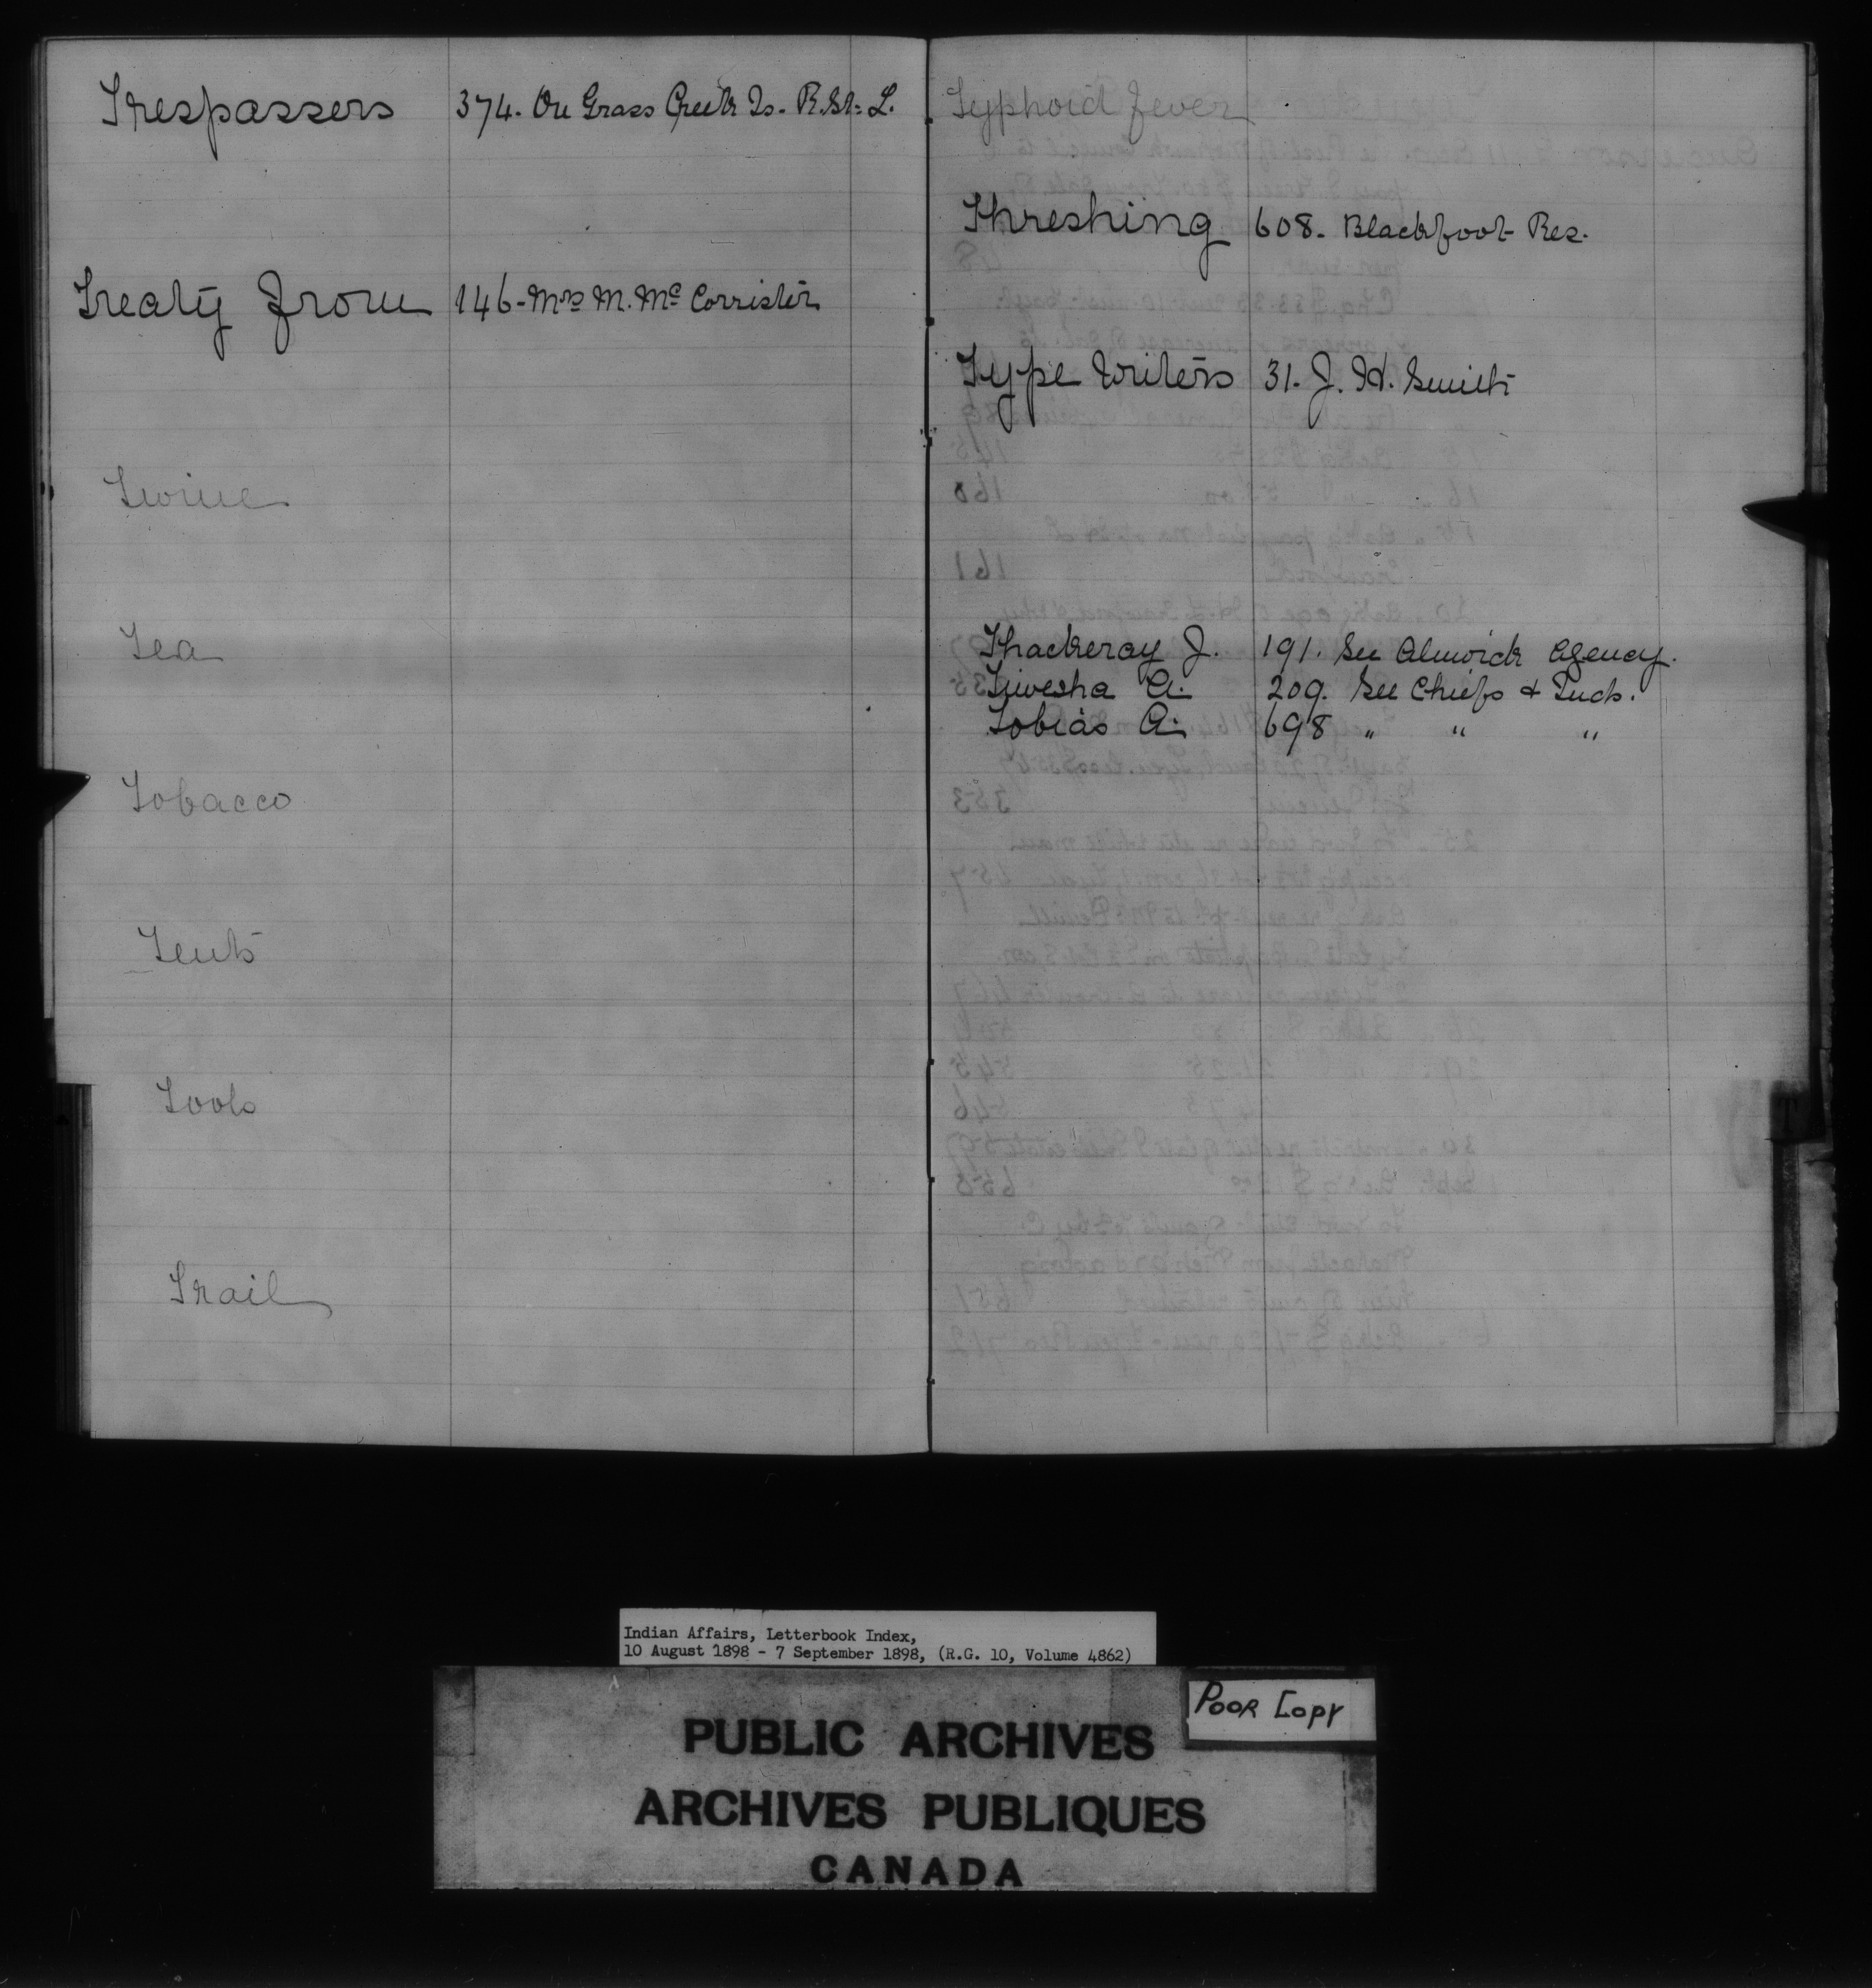 Trespassers 374. On Grass Creek Is. R. St. L.
Treaty from 146 - Mrs M. Mc Corrister
Twine
Tea
Tobacco
Tents
Tools
Trail
Typhoid Fever
Threshing 608. Blackfoot Res.
Type Writers 31. J. H. Smith
Thackeray J. 191. See Alnwick Agency.
A. 209. See Chiefs & Inds.
Tobias A. 698 " " "
Indian Affairs, Letterbook Index,
10 August 1898 - 7 September 1898, (R.G. 10, Volume 4862)
POOR COPY
PUBLIC ARCHIVES
ARCHIVES PUBLIQUES
CANADA